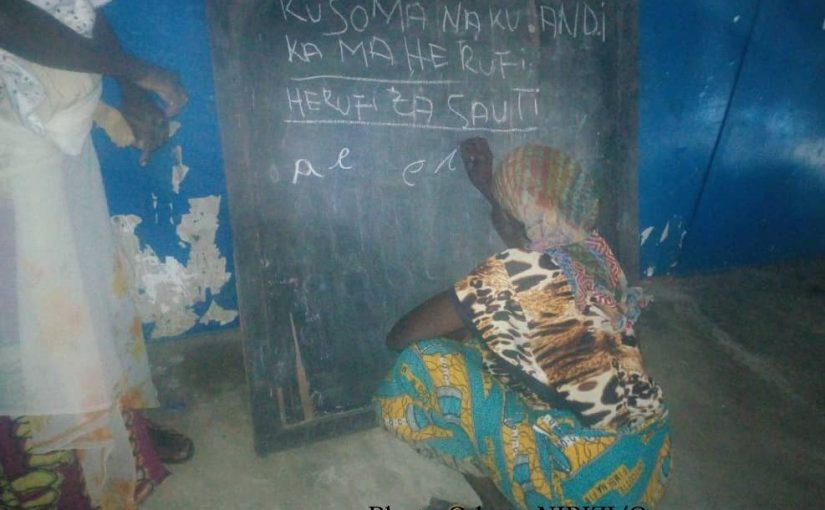 KUSOMA NA KUJANDI
KA MA HERUFI.
HERUFI ZA SAUTI
a e e i